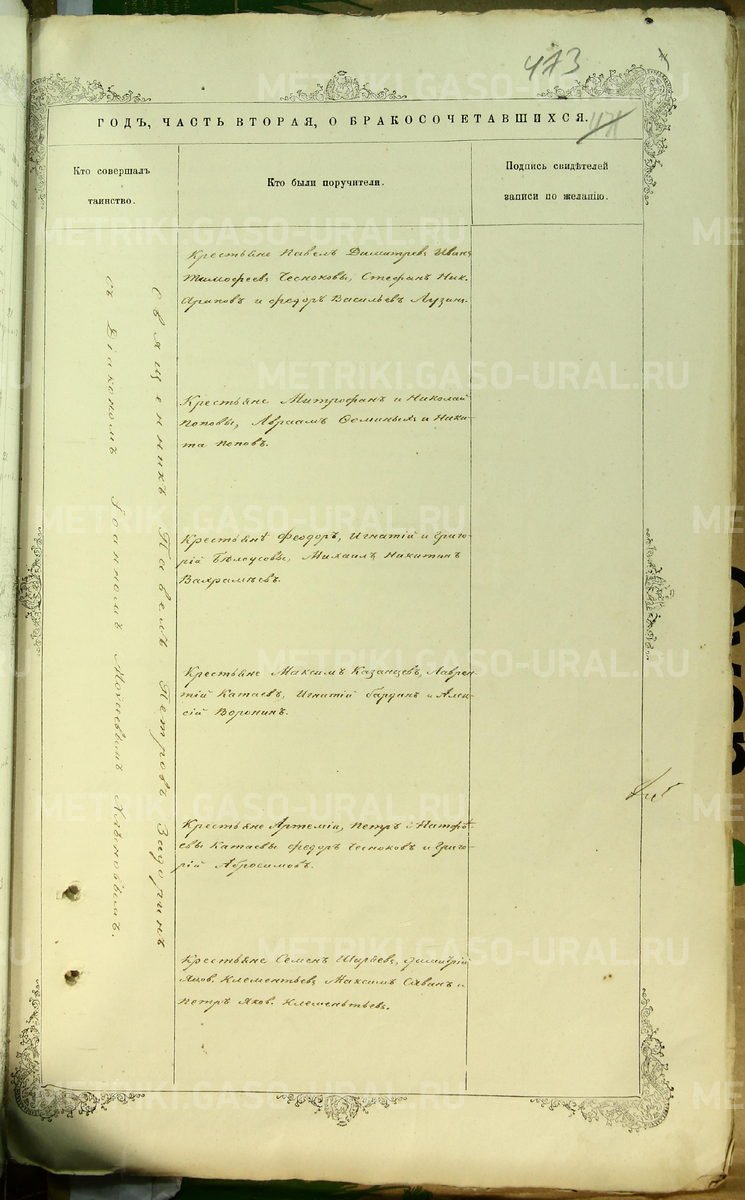 473
ГОДЪ, ЧАСТЬ ВТОРАЯ, О БРАКОСОЧЕТАВШИХСЯ.
Кто совершалъ
таинство.
Кто были поручители.
Подпись свидѣтелей
записи по желанію.
Священникъ Павелъ Петровъ Задоринъ
съ Діакономъ Іоанномъ Мокѣевымъ Хлыновымъ.
Крестьяне Павелъ Димитревъ Иванъ
Тимофеевъ Чесноковы, Стефанъ Ник.
Араповъ и Федоръ Васильевъ Лузинъ.
Крестьяне Митрофанъ и Николай
Поповы, Авраамъ Фоминыхъ и Ники-
та Поповъ.
Крестьянѣ Феодоръ, Игнатій и Григо-
рій Бѣлоусовы, Михаилъ Никитинъ
Вахрамѣевъ.
Крестьяне Максимъ Казанцевъ, Лаврен-
тій Катаевъ, Игнатій и Алек-
сій Воронинъ.
Крестьяне Артемій, Петръ и
Катаевы Федоръ Чесноковъ и Григо-
рій Абросимовъ.
Крестьяне Семенъ Димитрій
Яков. Клементьевъ Максимъ и
Петръ Яков. Клементьевъ.
METRIKI.GASO-URAL.RU